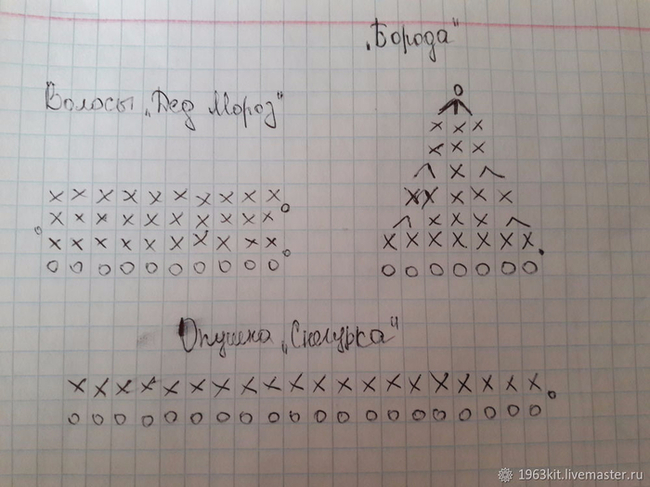 „Борода"
Волосы „Дед Мороз"
Опушка „Снегурка"
1963kit.livemaster.ru